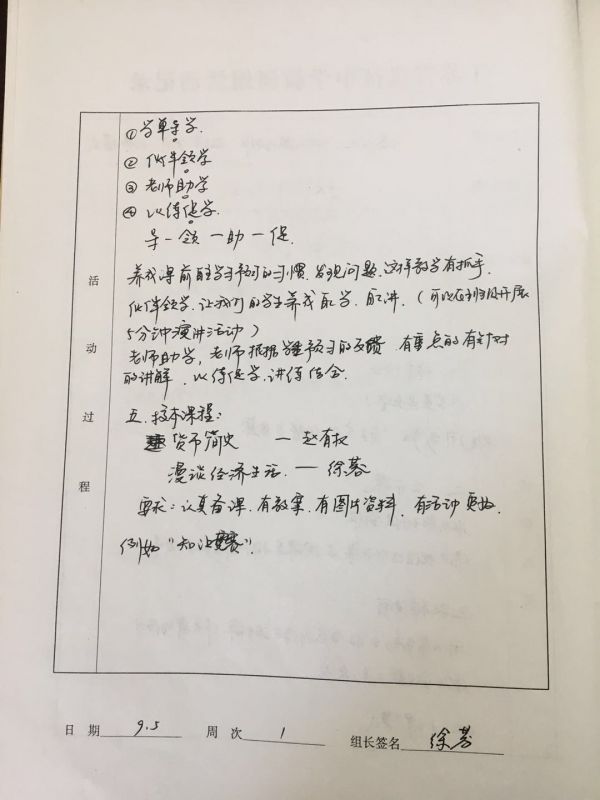 ①学单导学.
②伙伴领学
③老师助学
④以传促学.
导一领一助一促.
养成课前自主学习预习的习惯.发现问题.这样教学有抓手.
伙伴领学.让我们的学生养成敢学.敢讲.(可以在班级开展
5分钟演讲活动)
老师助学,老师根据学生预习的反馈 有重点的有针对
的讲解.以传促学.讲传结合.
五.校本课程:
货币简史 — 赵有权
漫谈经济生活.—徐蓉
要求:认真备课.有教案.有图片资料.有活动更好.
例如"知识竞赛".
活
动
过
程
日 期 9.5 周 次 1 组长签名 徐蓉